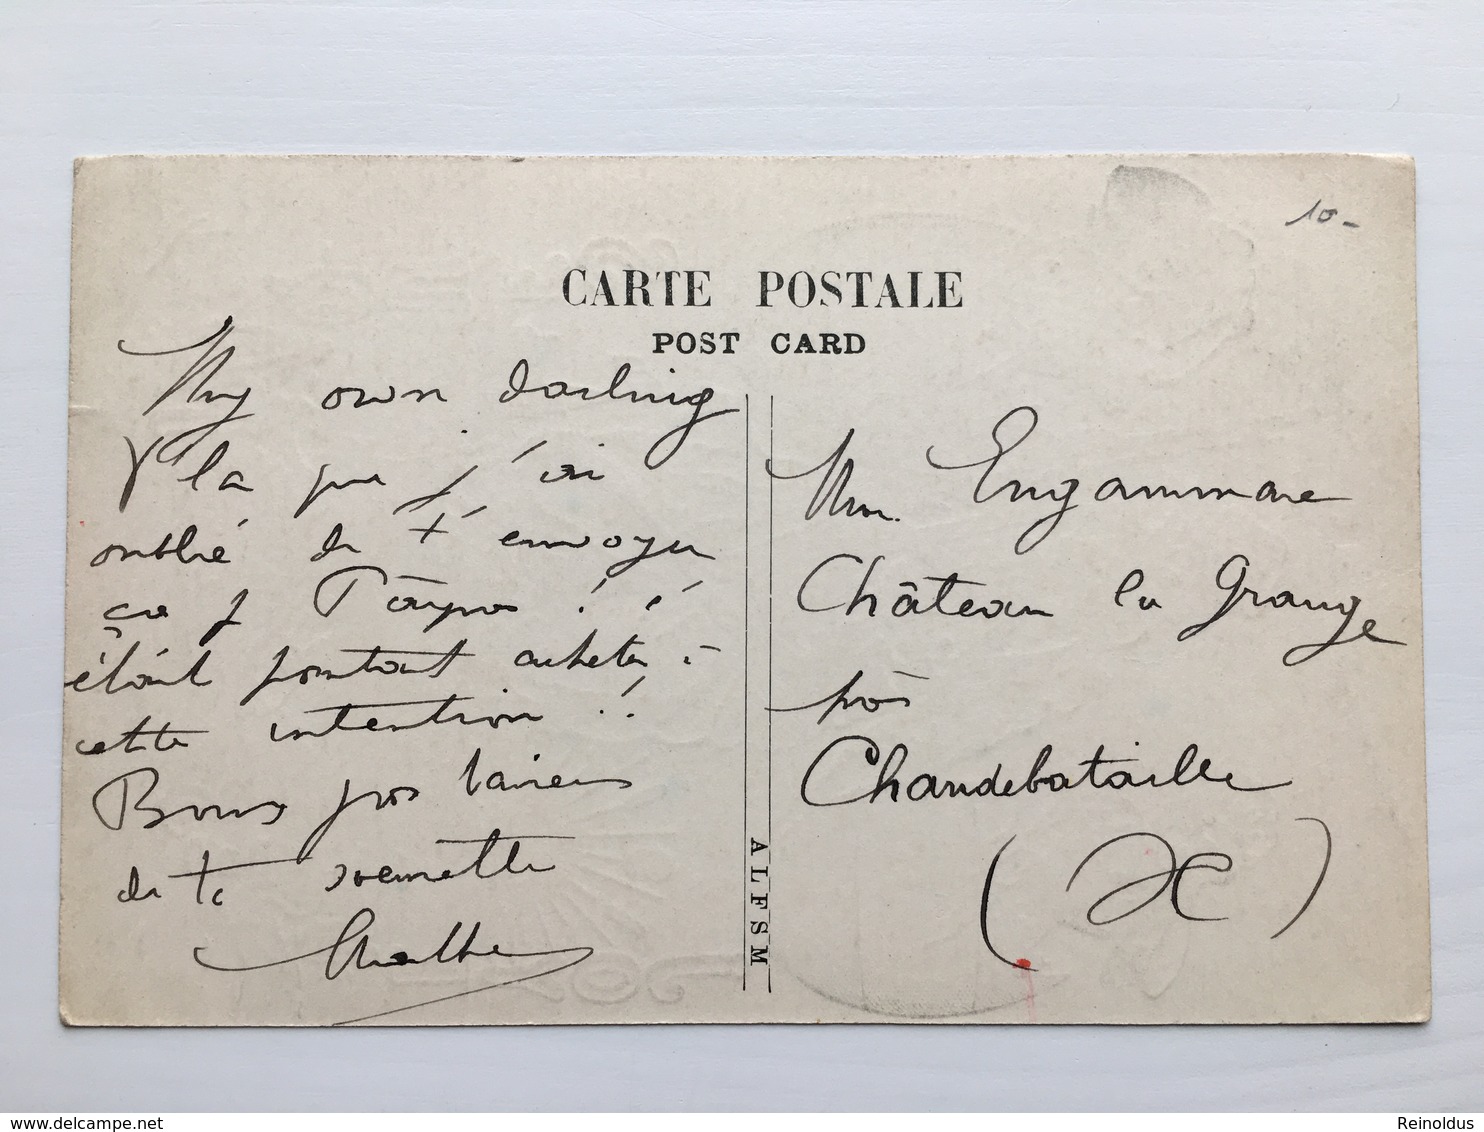 10-
CARTE POSTALE
POST CARD
My own darling
V'la que j'ai
oublié de t'envoyer
ça p Pâques ! c'
était pourtant acheté à
cette intention !!
Bons gros baisers
de ta
Marthe
ALFSM
Mme Engammare
Château la Grange
près
Chandebataille
delcampe.net
Reinoldus